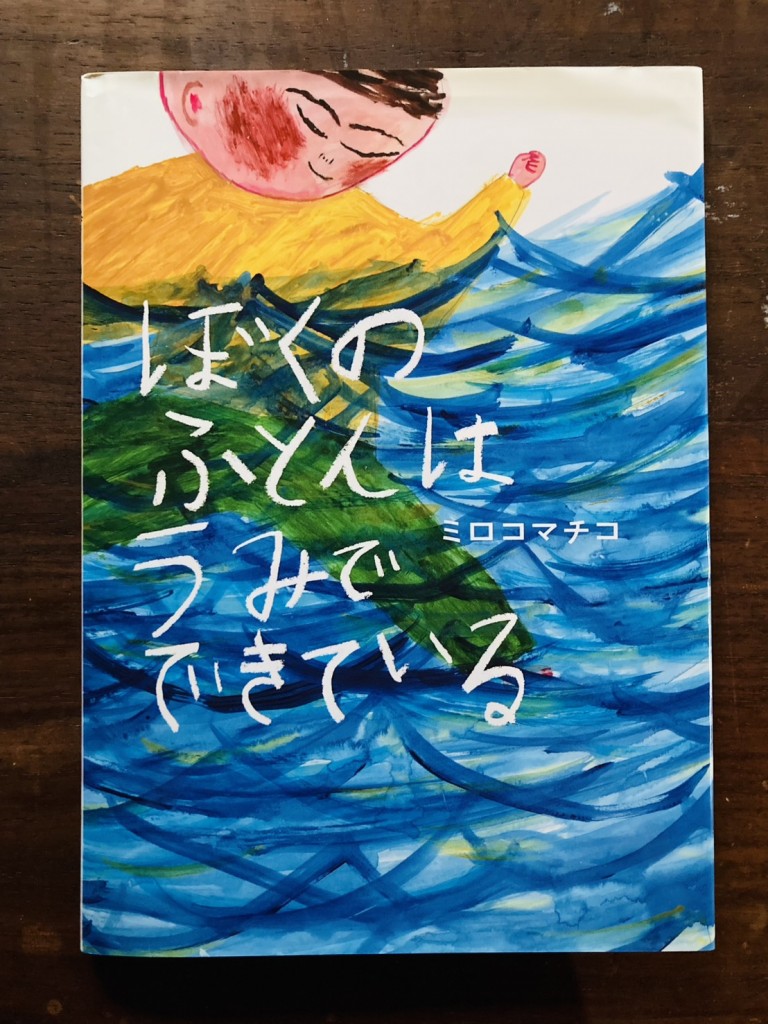 ぼくの
ふとんは
ミロコマチコ
うみで
できている